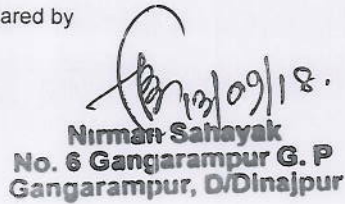 ared by
13/09/18.
Nirman Sahayak
No. 6 Gangarampur G. P
Gangarampur, D/Dinajpur